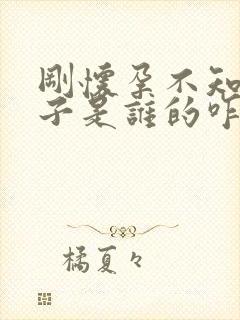 剛懷孕不知
子是誰的咋
橘夏々